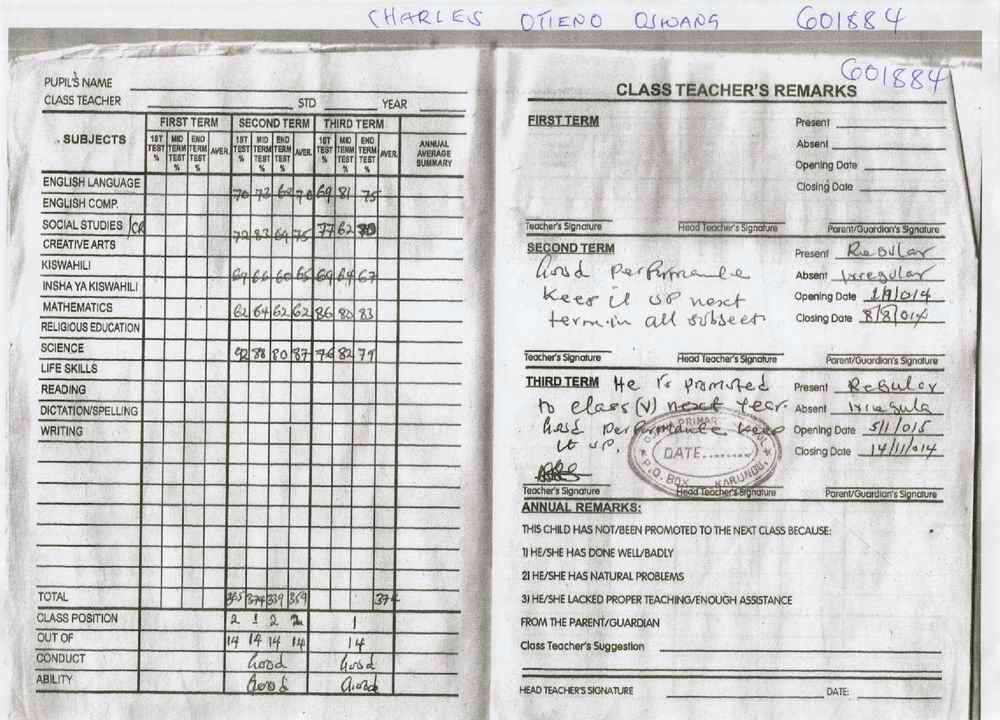 CHARLES OTIENO OSWANG 601884
601884
PUPIL'S NAME
CLASS TEACHER STD YEAR
SUBJECTS FIRST TERM SECOND TERM THIRD TERM ANNUAL AVERAGE SUMMARY
1ST TEST % MID TERM TEST % END TERM TEST % AVER. 1ST TEST % MID TERM TEST % END TERM TEST % AVER. 1ST TEST % MID TERM TEST % END TERM TEST % AVER.
ENGLISH LANGUAGE
70 72 68 70 69 81 75
ENGLISH COMP.
SOCIAL STUDIES /CR
72 83 69 75 77 62 70
CREATIVE ARTS
KISWAHILI
69 66 60 65 69 64 67
INSHA YA KISWAHILI
MATHEMATICS 62 64 62 62 86 80 83
RELIGIOUS EDUCATION
SCIENCE 92 88 80 87 76 82 79
LIFE SKILLS
READING
DICTATION/SPELLING
WRITING
TOTAL 365 374 339 359 374
CLASS POSITION 2 1 2 2 1
OUT OF 14 14 14 14 14
CONDUCT Good Good
ABILITY Good Good
CLASS TEACHER'S REMARKS
FIRST TERM
Present
Absent
Opening Date
Closing Date
Teacher's Signature Head Teacher's Signature Parent/Guardian's Signature
SECOND TERM
Good performance
Keep it up next
term in all subject
Present Regular
Absent Irregular
Opening Date 1/9/014
Closing Date 8/8/014
Teacher's Signature Head Teacher's Signature Parent/Guardian's Signature
THIRD TERM He is promoted
to class (V) next year.
Good performance keep
it up.
Present Regular
Absent Irregula
Opening Date 5/1/015
Closing Date 14/11/014
DATE........
P.O. BOX KARUNGU.
Teacher's Signature Head Teacher's Signature Parent/Guardian's Signature
ANNUAL REMARKS:
THIS CHILD HAS NOT/BEEN PROMOTED TO THE NEXT CLASS BECAUSE:
1) HE/SHE HAS DONE WELL/BADLY
2) HE/SHE HAS NATURAL PROBLEMS
3) HE/SHE LACKED PROPER TEACHING/ENOUGH ASSISTANCE
FROM THE PARENT/GUARDIAN
Class Teacher's Suggestion
HEAD TEACHER'S SIGNATURE DATE: